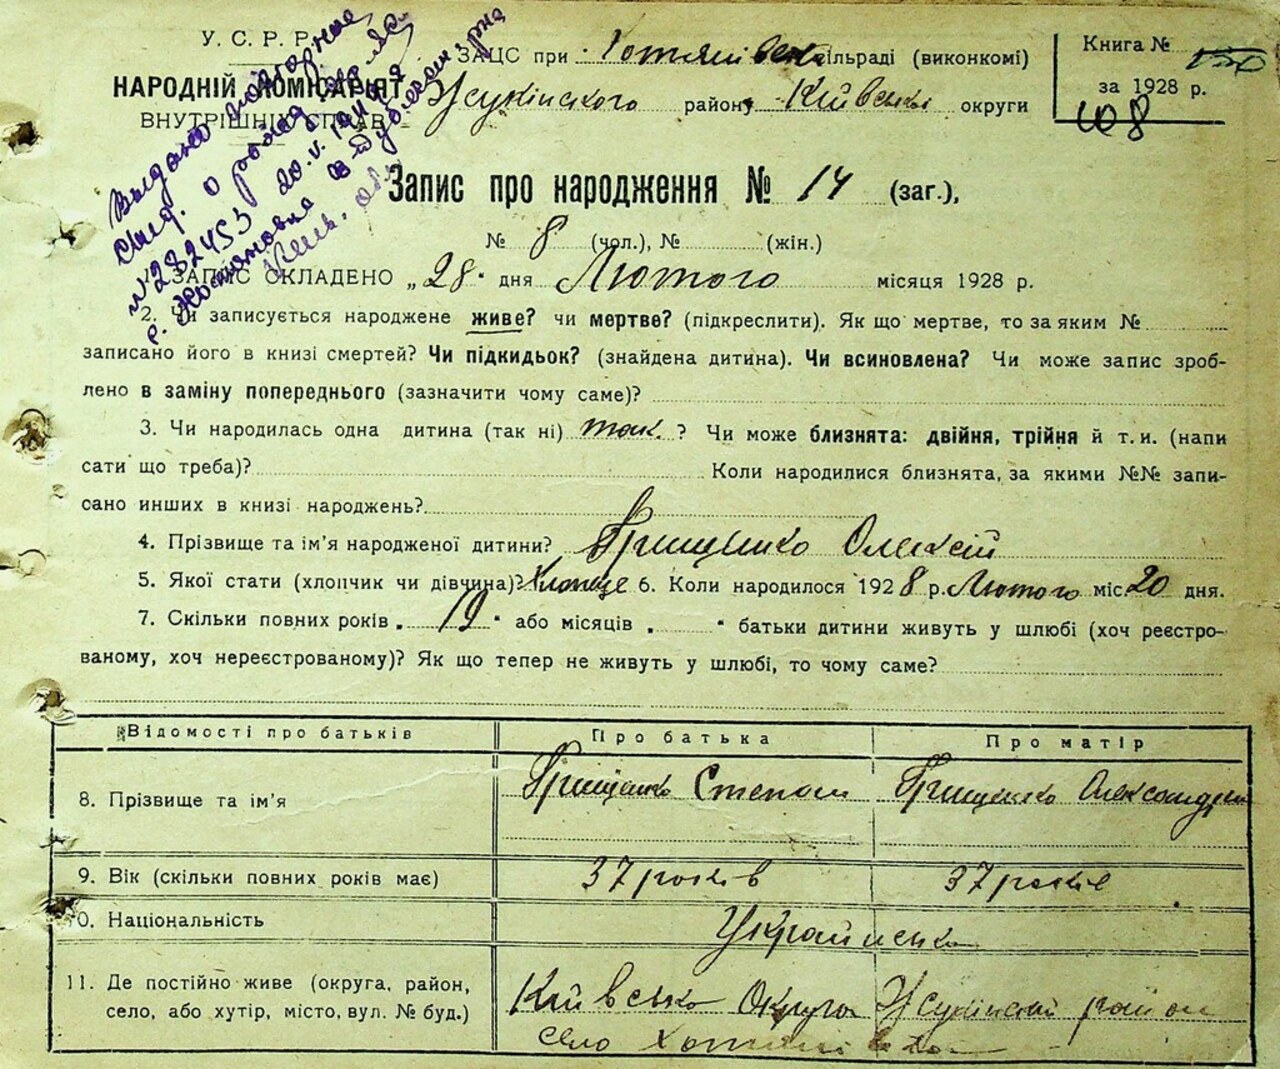 У. С. Р. Р.
НАРОДНІЙ КОМІСАРІЯТ
ВНУТРІШНІХ СПРАВ
ЗАЦС при Хотянівськ сільраді (виконкомі)
Жукінського району Київської округи
Книга №
за 1928 р.
108
Выдано повторное
свид. о рожд.
№ 282453 20.V.
с. Хотяновка
Запис про народження № 14 (заг.),
№ 8 (чол.), № (жін.)
ЗАПИС СКЛАДЕНО „28" дня Лютого місяця 1928 р.
2. Чи записується народжене живе? чи мертве? (підкреслити). Як що мертве, то за яким №
записано його в книзі смертей? Чи підкидьок? (знайдена дитина). Чи всиновлена? Чи може запис зроб-
лено в заміну попереднього (зазначити чому саме)?
3. Чи народилась одна дитина (так ні) так. ? Чи може близнята: двійня, трійня й т. и. (напи
сати що треба)? Коли народилися близнята, за якими №№ запи-
сано инших в книзі народжень?
4. Прізвище та ім'я народженої дитини? Грищенко Олексій
5. Якої стати (хлопчик чи дівчина)? Хлопце 6. Коли народилося 1928 р. Лютого міс. 20 дня.
7. Скільки повних років „ 19 " або місяців „ " батьки дитини живуть у шлюбі (хоч реєстро-
ваному, хоч нереєстрованому)? Як що тепер не живуть у шлюбі, то чому саме?
Відомості про батьків Про батька Про матір
8. Прізвище та ім'я Грищенко Степан Грищенко Олександра
9. Вік (скільки повних років має) 37 років 37 років
10. Національність Українська
11. Де постійно живе (округа, район,
село, або хутір, місто, вул. № буд.)
Київсько Округа Жукінский район
село Хотянівка